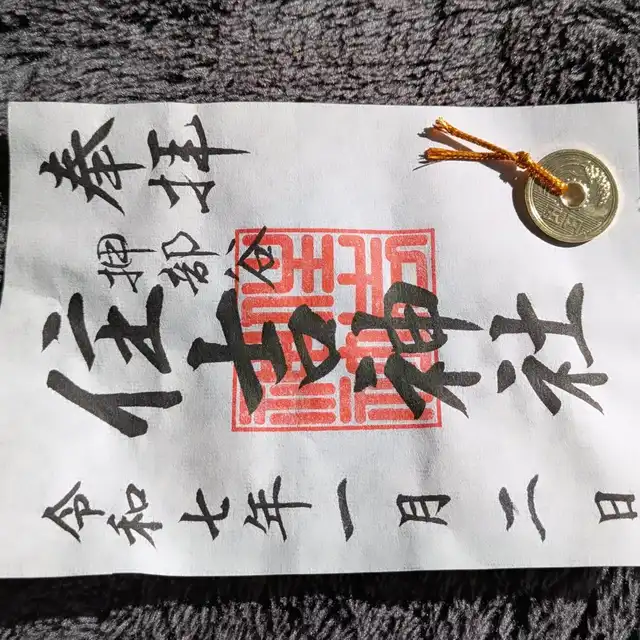 奉拝
押部谷
住吉神社
令和七年一月二日